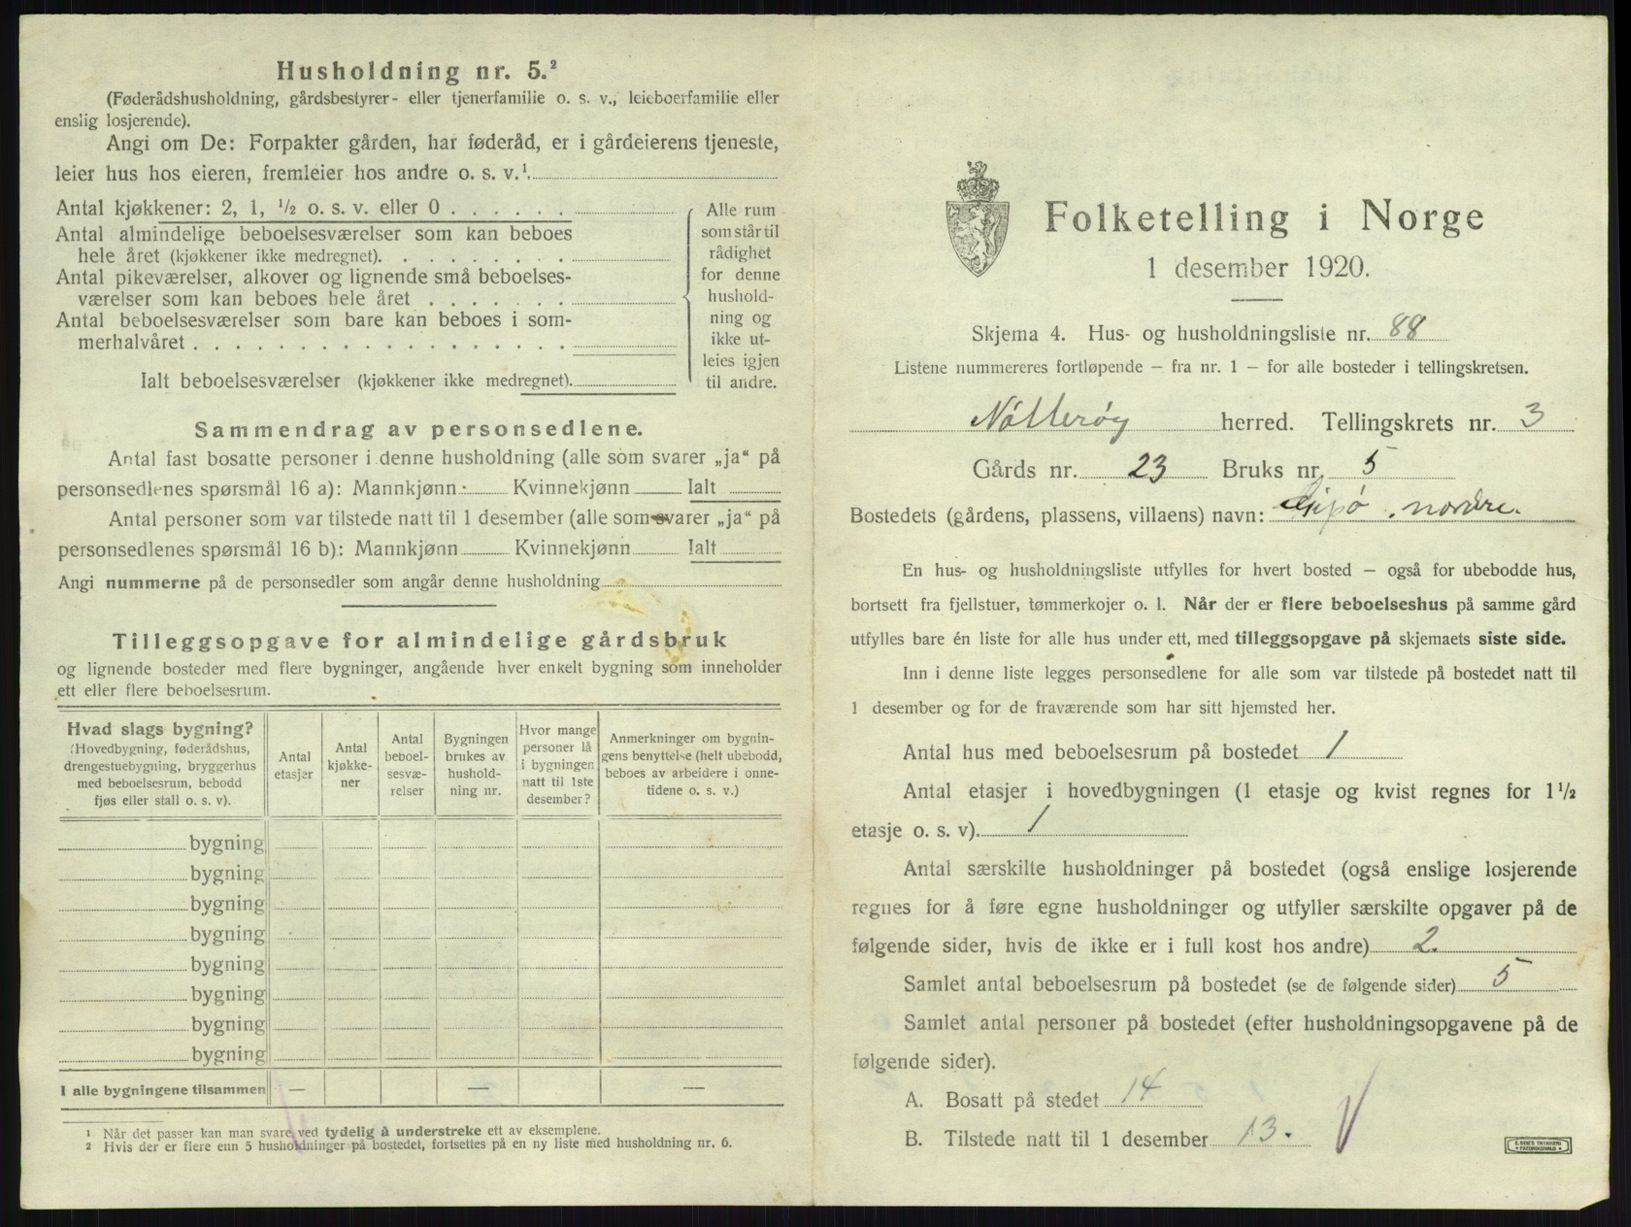 Husholdning nr. 5.²
(Føderådshusholdning, gårdsbestyrer- eller tjenerfamilie o. s. v., leieboerfamilie eller
enslig losjerende).
Angi om De: Forpakter gården, har føderåd, er i gårdeierens tjeneste,
leier hus hos eieren, fremleier hos andre o. s. v.¹
Antal kjøkkener: 2, 1, ½ o. s. v. eller 0 . . . . . .
Antal almindelige beboelsesværelser som kan beboes
hele året (kjøkkener ikke medregnet). . . . . . . . .
Antal pikeværelser, alkover og lignende små beboelses-
værelser som kan beboes hele året . . . . . . .
Antal beboelsesværelser som bare kan beboes i som-
merhalvåret . . . . . . . . . . . . . . . . . .
Ialt beboelsesværelser (kjøkkener ikke medregnet).
Alle rum
som står til
rådighet
for denne
hushold-
ning og
ikke ut-
leies igjen
til andre.
Sammendrag av personsedlene.
Antal fast bosatte personer i denne husholdning (alle som svarer „ja“ på
personsedlenes spørsmål 16 a): Mannkjønn Kvinnekjønn Ialt
Antal personer som var tilstede natt til 1 desember (alle som svarer „ja“ på
personsedlenes spørsmål 16 b): Mannkjønn Kvinnekjønn Ialt
Angi nummerne på de personsedler som angår denne husholdning
Tilleggsopgave for almindelige gårdsbruk
og lignende bosteder med flere bygninger, angående hver enkelt bygning som inneholder
ett eller flere beboelsesrum.
Hvad slags bygning?
(Hovedbygning, føderådshus,
drengestuebygning, bryggerhus
med beboelsesrum, bebodd
fjøs eller stall o. s. v).
Antal
etasjer
Antal
kjøkke-
ner
Antal
beboel-
sesvæ-
relser
Bygningen
brukes av
hushold-
ning nr.
Hvor mange
personer lå
i bygningen
natt til 1ste
desember?
Anmerkninger om bygnin-
gens benyttelse (helt ubebodd,
beboes av arbeidere i onne-
tidene o. s. v.)
bygning
bygning
bygning
bygning
bygning
bygning
bygning
bygning
I alle bygningene tilsammen — — —
¹ Når det passer kan man svare ved tydelig å understreke ett av eksemplene.
² Hvis der er flere enn 5 husholdninger på bostedet, fortsettes på en ny liste med husholdning nr. 6.
Folketelling i Norge
1 desember 1920.
Skjema 4. Hus- og husholdningsliste nr. 88
Listene nummereres fortløpende — fra nr. 1 — for alle bosteder i tellingskretsen.
Nøtterøy herred. Tellingskrets nr. 3
Gårds nr. 23 Bruks nr. 5
Bostedets (gårdens, plassens, villaens) navn: nordre.
En hus- og husholdningsliste utfylles for hvert bosted — også for ubebodde hus,
bortsett fra fjellstuer, tømmerkojer o. l. Når der er flere beboelseshus på samme gård
utfylles bare én liste for alle hus under ett, med tilleggsopgave på skjemaets siste side.
Inn i denne liste legges personsedlene for alle som var tilstede på bostedet natt til
1 desember og for de fraværende som har sitt hjemsted her.
Antal hus med beboelsesrum på bostedet 1
Antal etasjer i hovedbygningen (1 etasje og kvist regnes for 1½
etasje o. s. v). 1
Antal særskilte husholdninger på bostedet (også enslige losjerende
regnes for å føre egne husholdninger og utfyller særskilte opgaver på de
følgende sider, hvis de ikke er i full kost hos andre) 2.
Samlet antal beboelsesrum på bostedet (se de følgende sider) 5
Samlet antal personer på bostedet (efter husholdningsopgavene på de
følgende sider).
A. Bosatt på stedet 14
B. Tilstede natt til 1 desember 13.